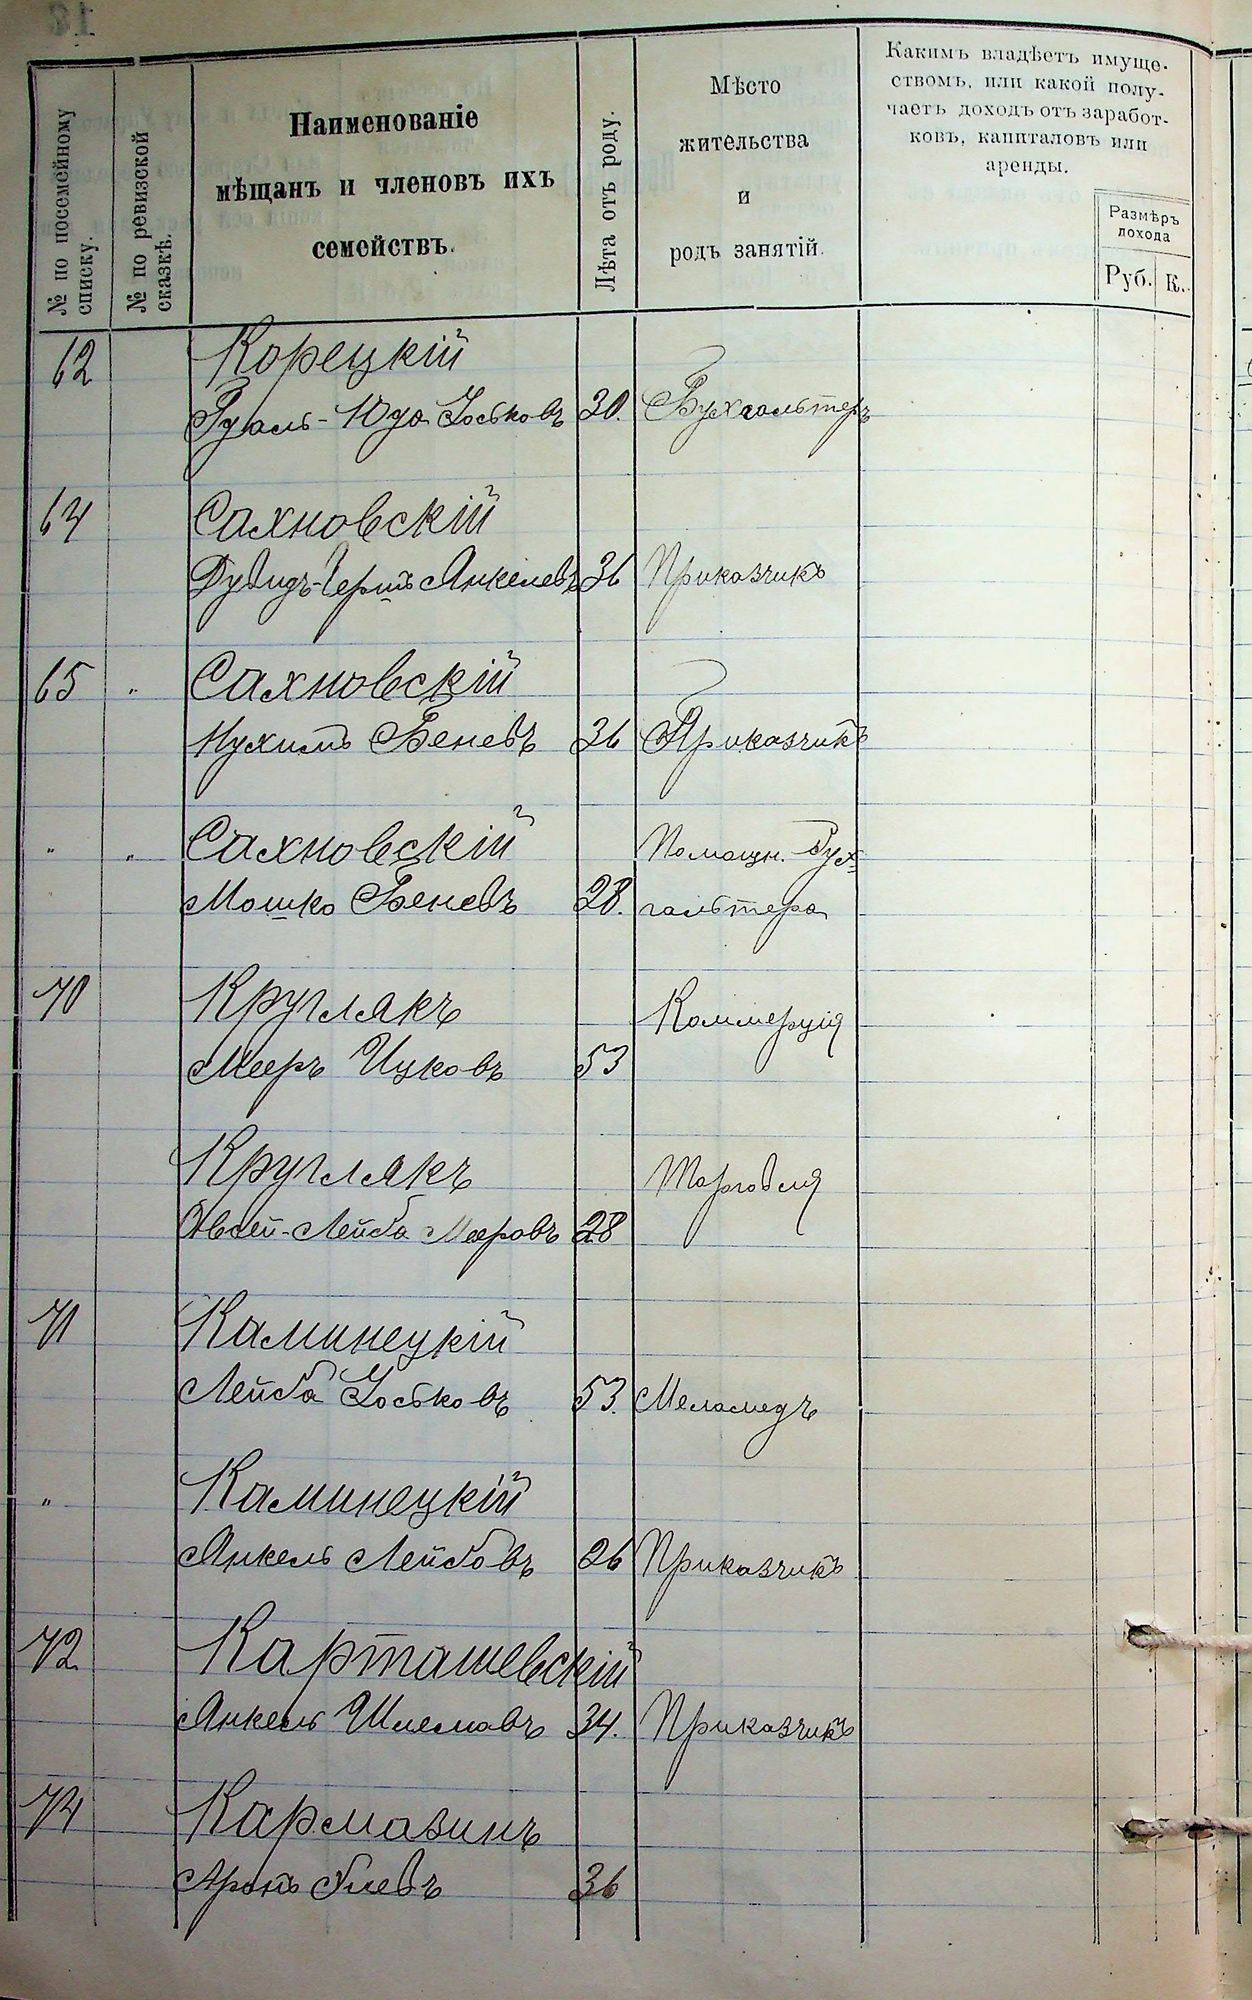 № по посемейному списку.
№ по ревизской сказкѣ.
Наименованіе
мѣщанъ и членовъ ихъ
семействъ.
Лѣта отъ роду.
Мѣсто
жительства
и
родъ занятій.
Какимъ владѣетъ имуще-
ствомъ, или какой полу-
чаетъ доходъ отъ заработ-
ковъ, капиталовъ или
аренды.
Размѣръ
дохода
Руб. К.
62 Корецкій
Юда Іоськовъ 30. Бухгальтеръ
64 Сахновскій
Дувидъ-Гершъ Янкелевъ 36 Приказчикъ
65 " Сахновскій
Нухимъ Беневъ 36 Приказчикъ
" " Сахновскій Помощн. Бух-
Мошко Беневъ 28. гальтера
70 Круглякъ Коммерція
Мееръ Ицковъ 53
Круглякъ Торговля
Овсей-Лейба Мееровъ 28
71 Каминецкій
Лейба Іоськовъ 53. Меламедъ
" Каминецкій
Янкель Лейбовъ 26 Приказчикъ
72 Карташевскій
Янкель Шлемовъ 34. Приказчикъ
74 Кармазинъ
Аронъ 36